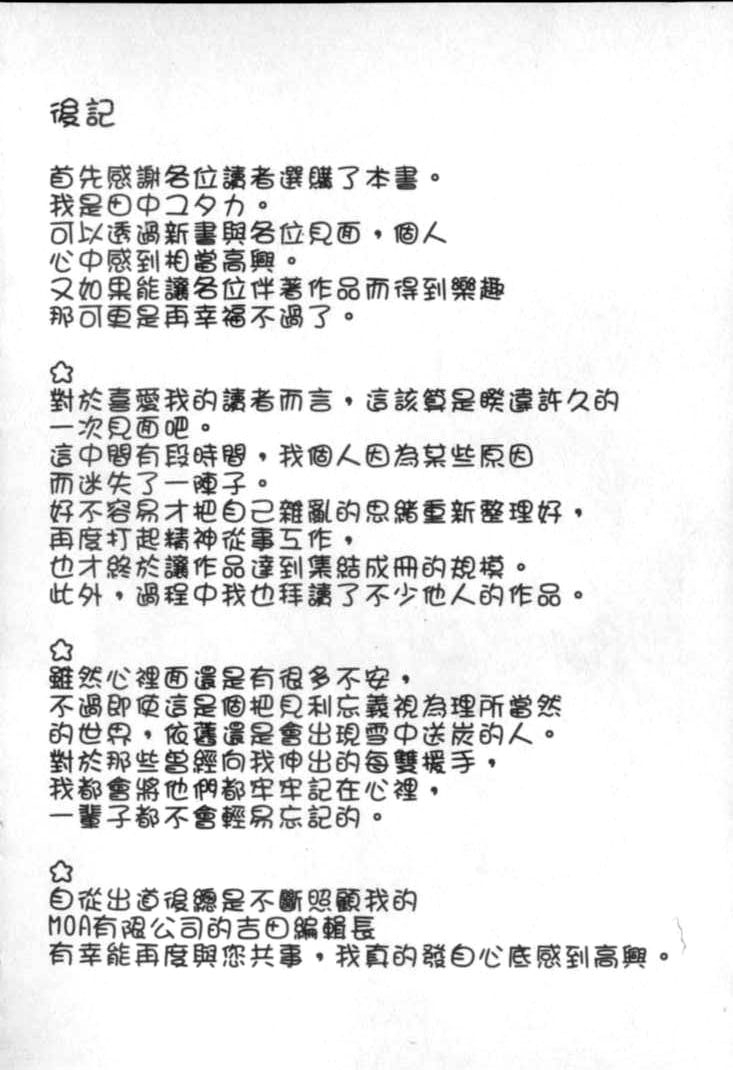 後記
首先感謝各位讀者選購了本書。
我是田中ユタカ。
可以透過新書與各位見面，個人
心中感到相當高興。
又如果能讓各位伴著作品而得到樂趣
那可更是再幸福不過了。
☆
對於喜愛我的讀者而言，這該算是睽違許久的
一次見面吧。
這中間有段時間，我個人因為某些原因
而迷失了一陣子。
好不容易才把自己雜亂的思緒重新整理好，
再度打起精神從事工作，
也才終於讓作品達到集結成冊的規模。
此外，過程中我也拜讀了不少他人的作品。
☆
雖然心裡面還是有很多不安，
不過即使這是個把見利忘義視為理所當然
的世界，依舊還是會出現雪中送炭的人。
對於那些曾經向我伸出的每雙援手，
我都會將他們都牢牢記在心裡，
一輩子都不會輕易忘記的。
☆
自從出道後總是不斷照顧我的
MOA有限公司的吉田編輯長
有幸能再度與您共事，我真的發自心底感到高興。